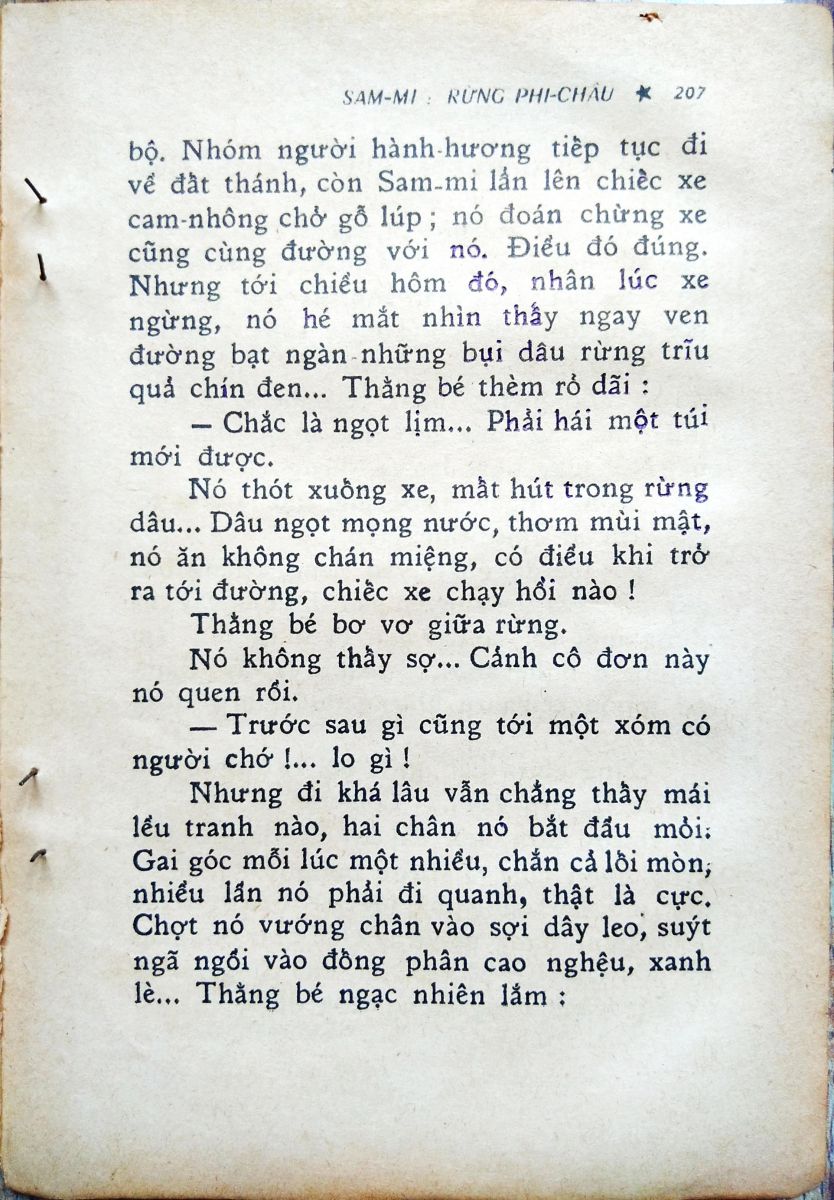 SAM-MI : RỪNG PHI-CHÂU ★ 207
bộ. Nhóm người hành-hương tiếp tục đi
về đất thánh, còn Sam-mi lẩn lên chiếc xe
cam-nhông chở gỗ lúp ; nó đoán chừng xe
cũng cùng đường với nó. Điều đó đúng.
Nhưng tới chiều hôm đó, nhân lúc xe
ngừng, nó hé mắt nhìn thấy ngay ven
đường bạt ngàn những bụi dâu rừng trĩu
quả chín đen... Thằng bé thèm rỏ dãi :
— Chắc là ngọt lịm... Phải hái một túi
mới được.
Nó thót xuống xe, mất hút trong rừng
dâu... Dâu ngọt mọng nước, thơm mùi mật,
nó ăn không chán miệng, có điều khi trở
ra tới đường, chiếc xe chạy hồi nào !
Thằng bé bơ vơ giữa rừng.
Nó không thấy sợ... Cảnh cô đơn này
nó quen rồi.
— Trước sau gì cũng tới một xóm có
người chớ !... lo gì !
Nhưng đi khá lâu vẫn chẳng thấy mái
lều tranh nào, hai chân nó bắt đầu mỏi.
Gai góc mỗi lúc một nhiều, chắn cả lối mòn,
nhiều lần nó phải đi quanh, thật là cực.
Chợt nó vướng chân vào sợi dây leo, suýt
ngã ngồi vào đống phân cao nghệu, xanh
lè... Thằng bé ngạc nhiên lắm :